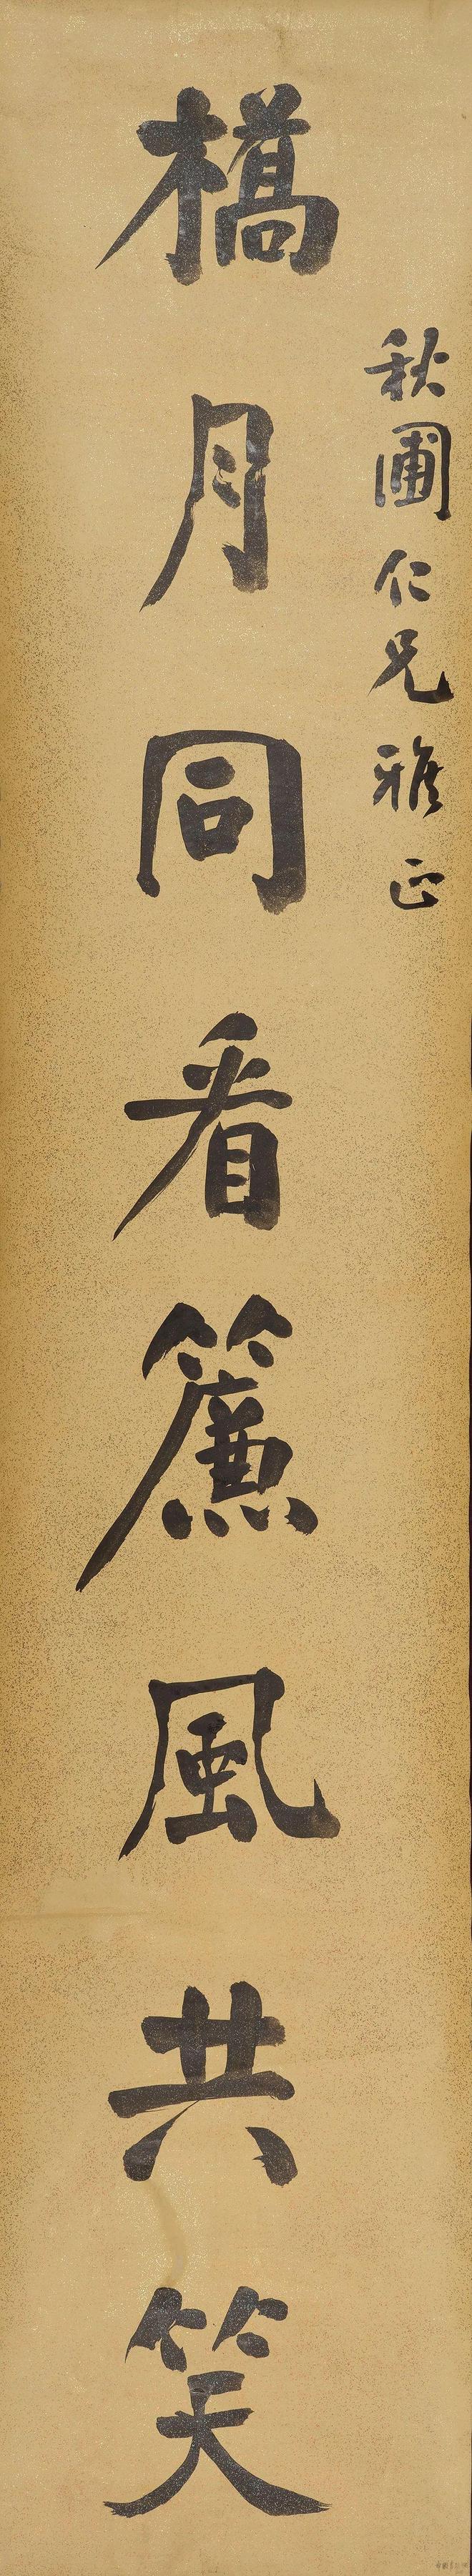 秋圃仁兄雅正
橋月同看簾風共笑